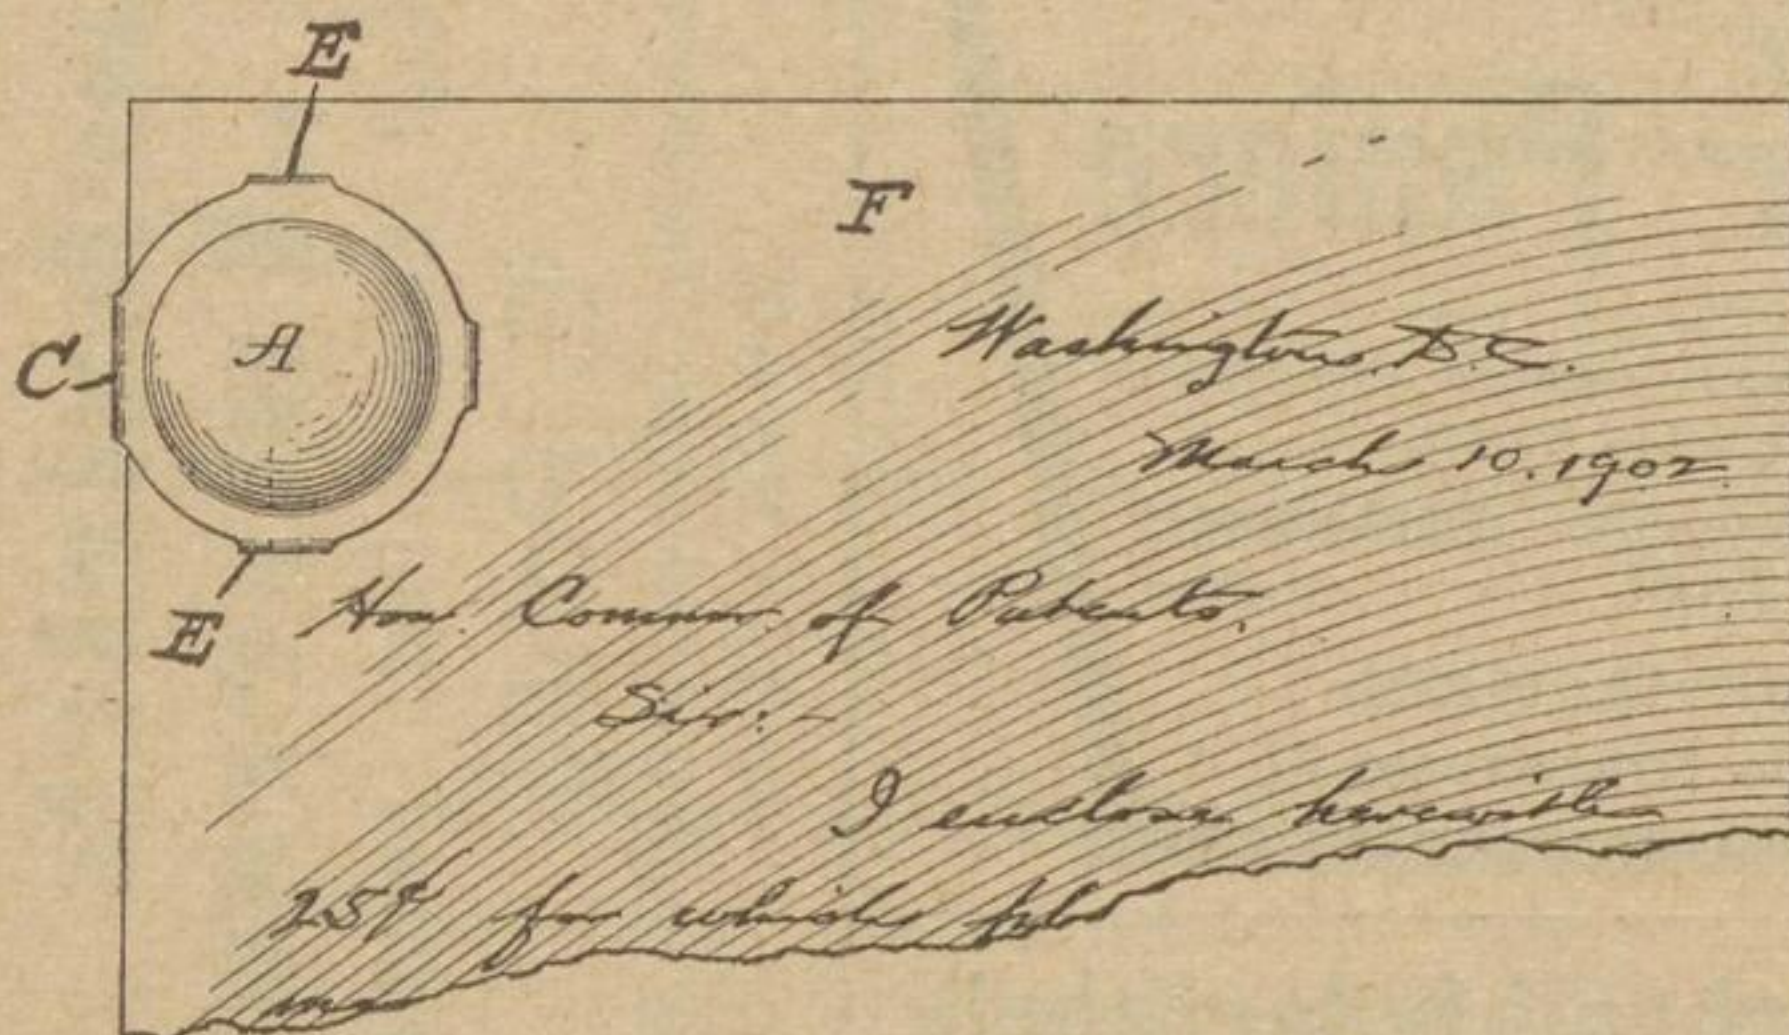 E
F
A
C
Washington, D.C.
March 10. 1902
E
Hon. Commr. of Patents.
Sir:-
I enclose herewith
25¢ for which pls